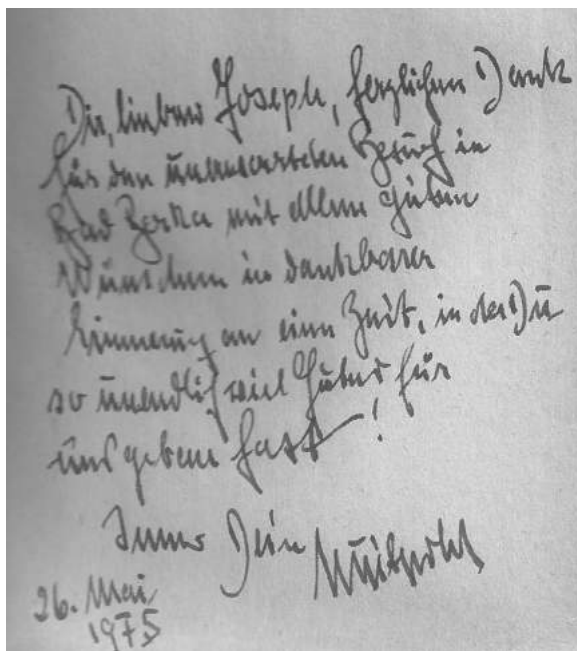 Dir, lieber Joseph, herzlichen Dank
für den unerwarteten Besuch in
Bad Berka mit allen guten
Wünschen in dankbarer
Erinnerung an eine Zeit, in der Du
so unendlich viel Gutes für
uns getan hast!
Immer Dein
26. Mai
1975